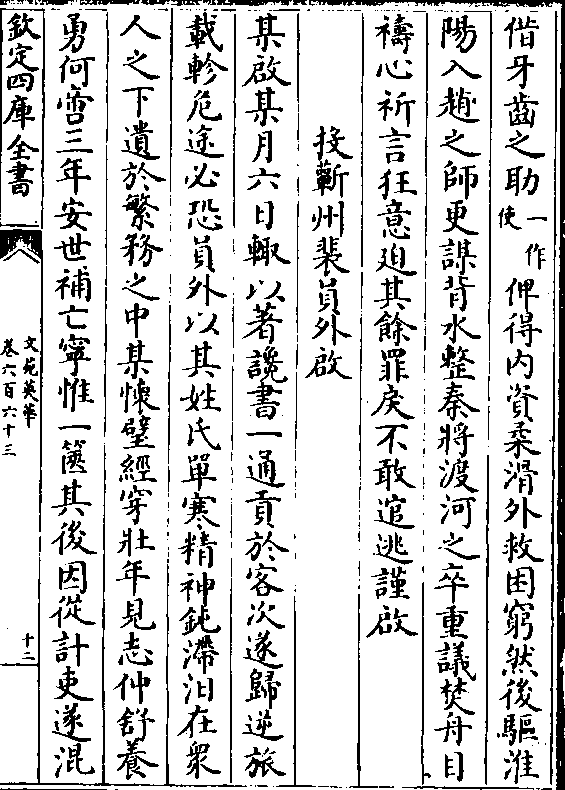 借牙齒之助一作使俾得内資柔滑外救困窮然後驅淮
陽入趙之師更謀背水整秦將渡河之卒重議焚舟目
禱心祈言狂意迫其餘罪戾不敢逭逃謹啟
投蘄州裴員外啟
某啟某月六日輙以著讒書一通貢於客次遂歸逆旅
載軫危途必恐員外以其姓氏單寒精神鈍滯汨在衆
人之下遺於繁務之中某懷壁經穿壯年見志仲舒養
勇何啻三年安世補亡寧惟一篋其後因從計吏遂混
欽定四庫全書
文苑英華
卷六百六十三
十二